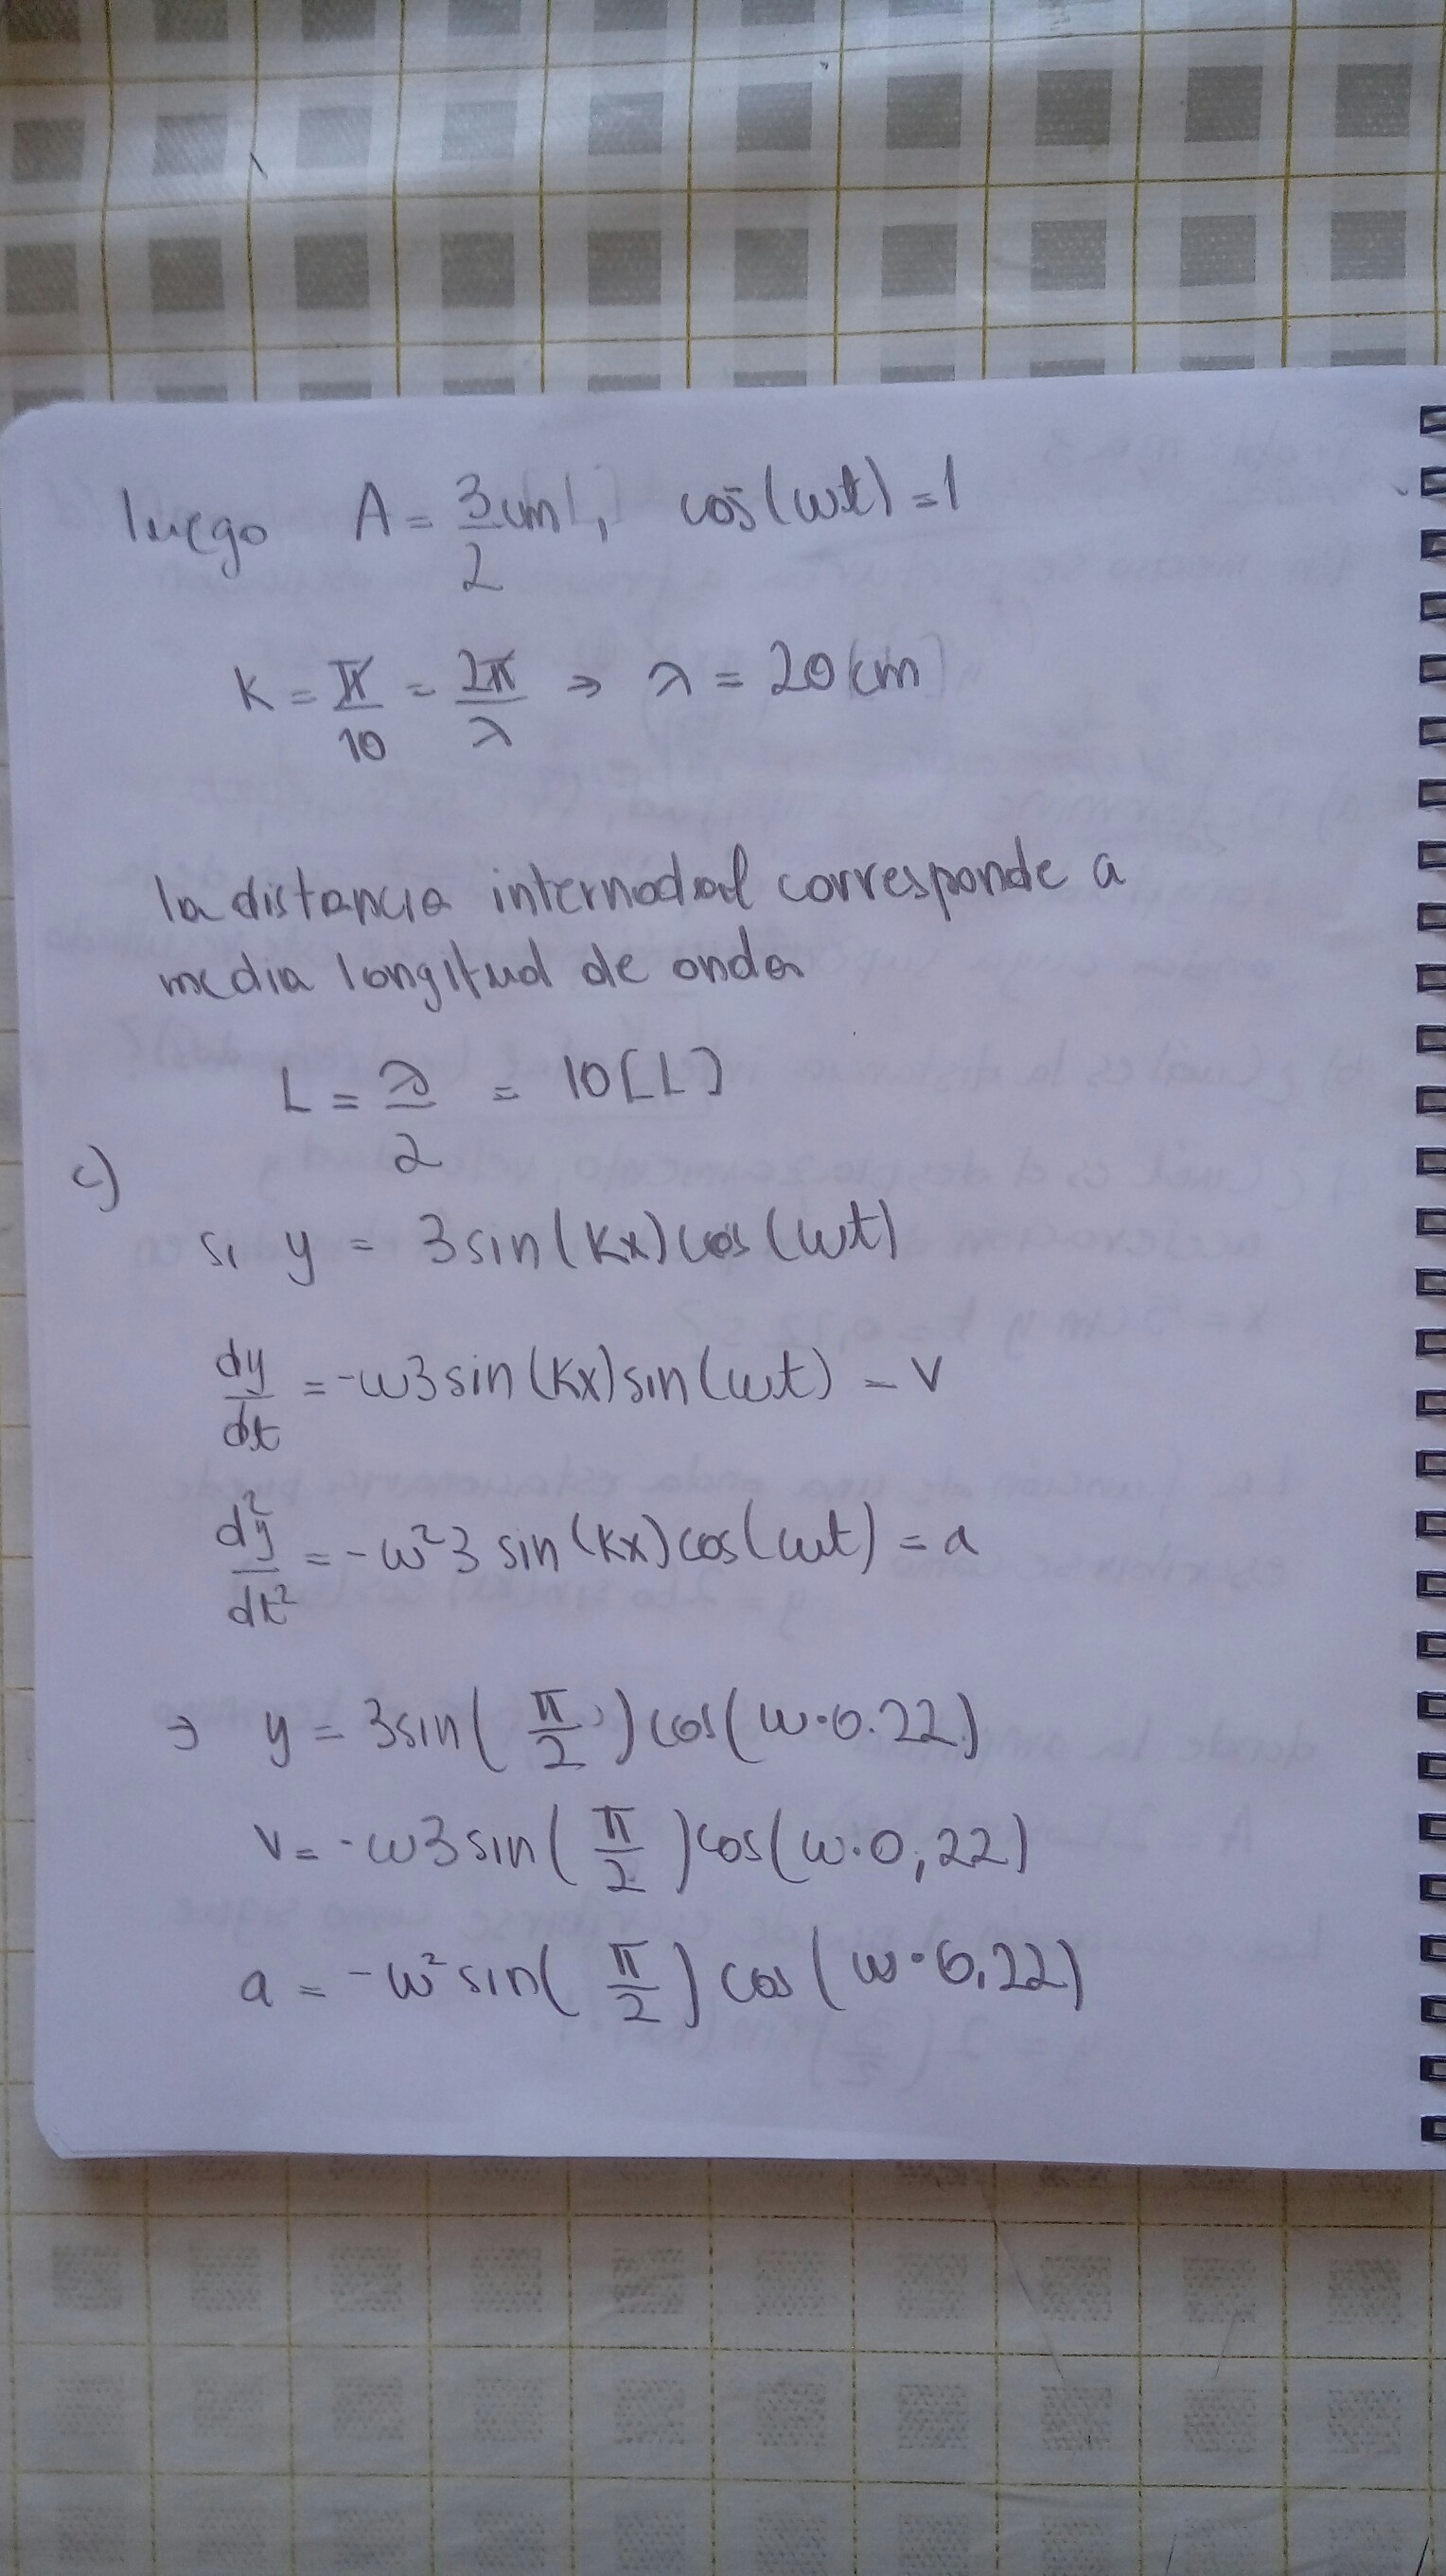 luego A = 3/2 cm[], cos(ωt) = 1
K = π/10 = 2π/λ ⇒ λ = 20[cm]
la distancia internodal corresponde a
media longitud de onda
L = λ/2 = 10[L]
c)
si y = 3sin(Kx)cos(ωt)
dy/dt = -ω3sin(Kx)sin(ωt) = v
d²y/dt² = -ω²3 sin(Kx)cos(ωt) = a
⇒ y = 3sin(π/2)cos(ω·0.22)
v = -ω3sin(π/2)cos(ω·0,22)
a = -ω²sin(π/2)cos(ω·0,22)